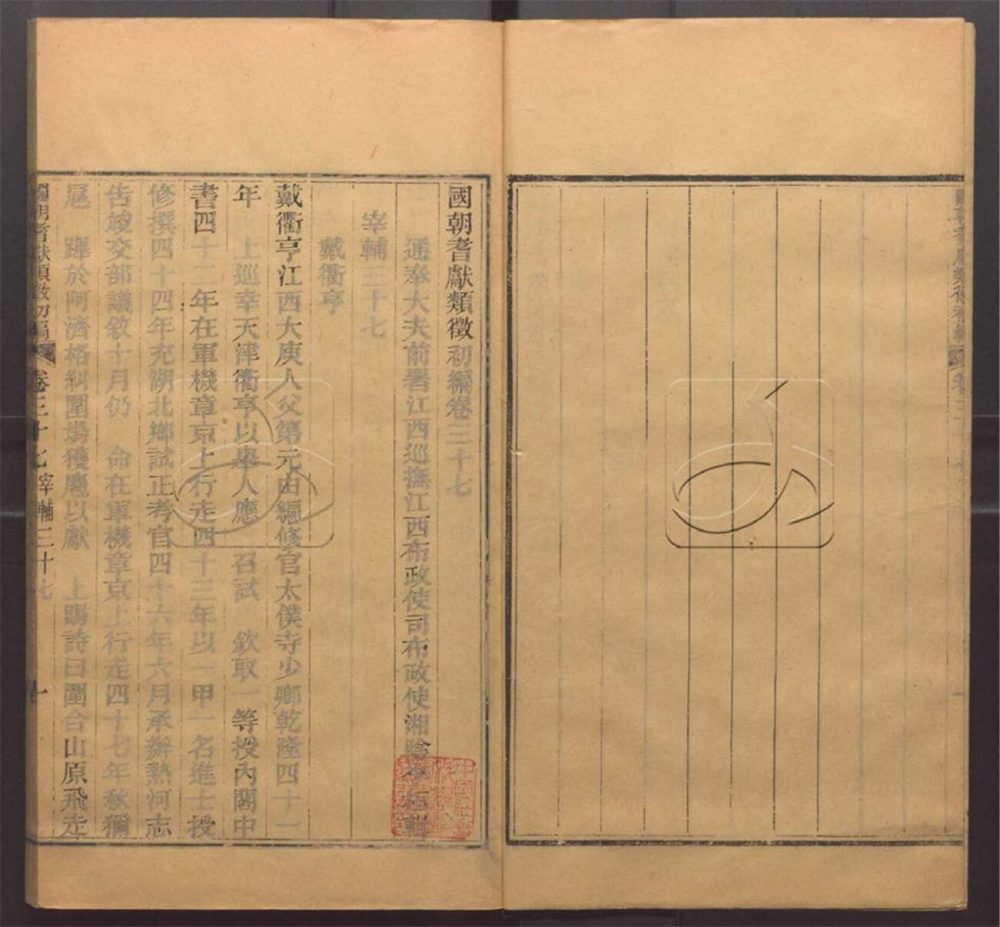 國朝耆獻類徵初編卷三十七
通奉大夫前署江西巡撫江西布政使司布政使湘陰李桓輯
宰輔三十七
戴衢亨
戴衢亨江西大庾人父第元由編修官太僕寺少卿乾隆四十一
年 上巡幸天津衢亨以舉人應 召試 欽取一等授內閣中
書四十二年在軍機章京上行走四十三年以一甲一名進士授
修撰四十四年充湖北鄉試正考官四十六年六月承辦熱河志
告竣交部議敘十月仍 命在軍機章京上行走四十七年秋獮
扈 蹕於阿濟格鳩圍場獲麅以獻 上賜詩曰圍合山原飛走
國朝耆獻類徵初編 卷三十七 宰輔三十七 一